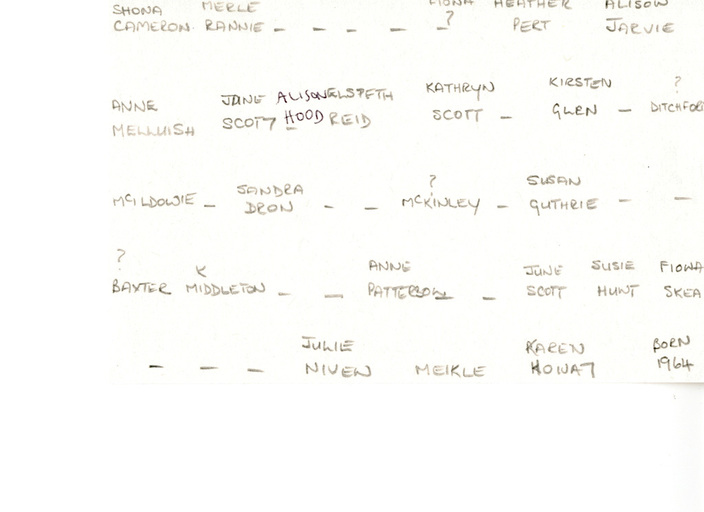 SHONA MERLE FIONA HEATHER ALISON
CAMERON RANNIE - - - - - ? PERT JARVIE
ANNE JUNE ALISON ELSPETH KATHRYN KIRSTEN ?
MELLUISH SCOTT HOOD REID SCOTT - GLEN - DITCHFOR
SANDRA ? SUSAN
MCILDOWIE - DRON - - MCKINLEY - GUTHRIE - -
? K ANNE JUNE SUSIE FIONA
BAXTER MIDDLETON - - PATTERSON - SCOTT HUNT SKEA
JULIE KAREN BORN
- - - NIVEN MEIKLE HOWAT 1964